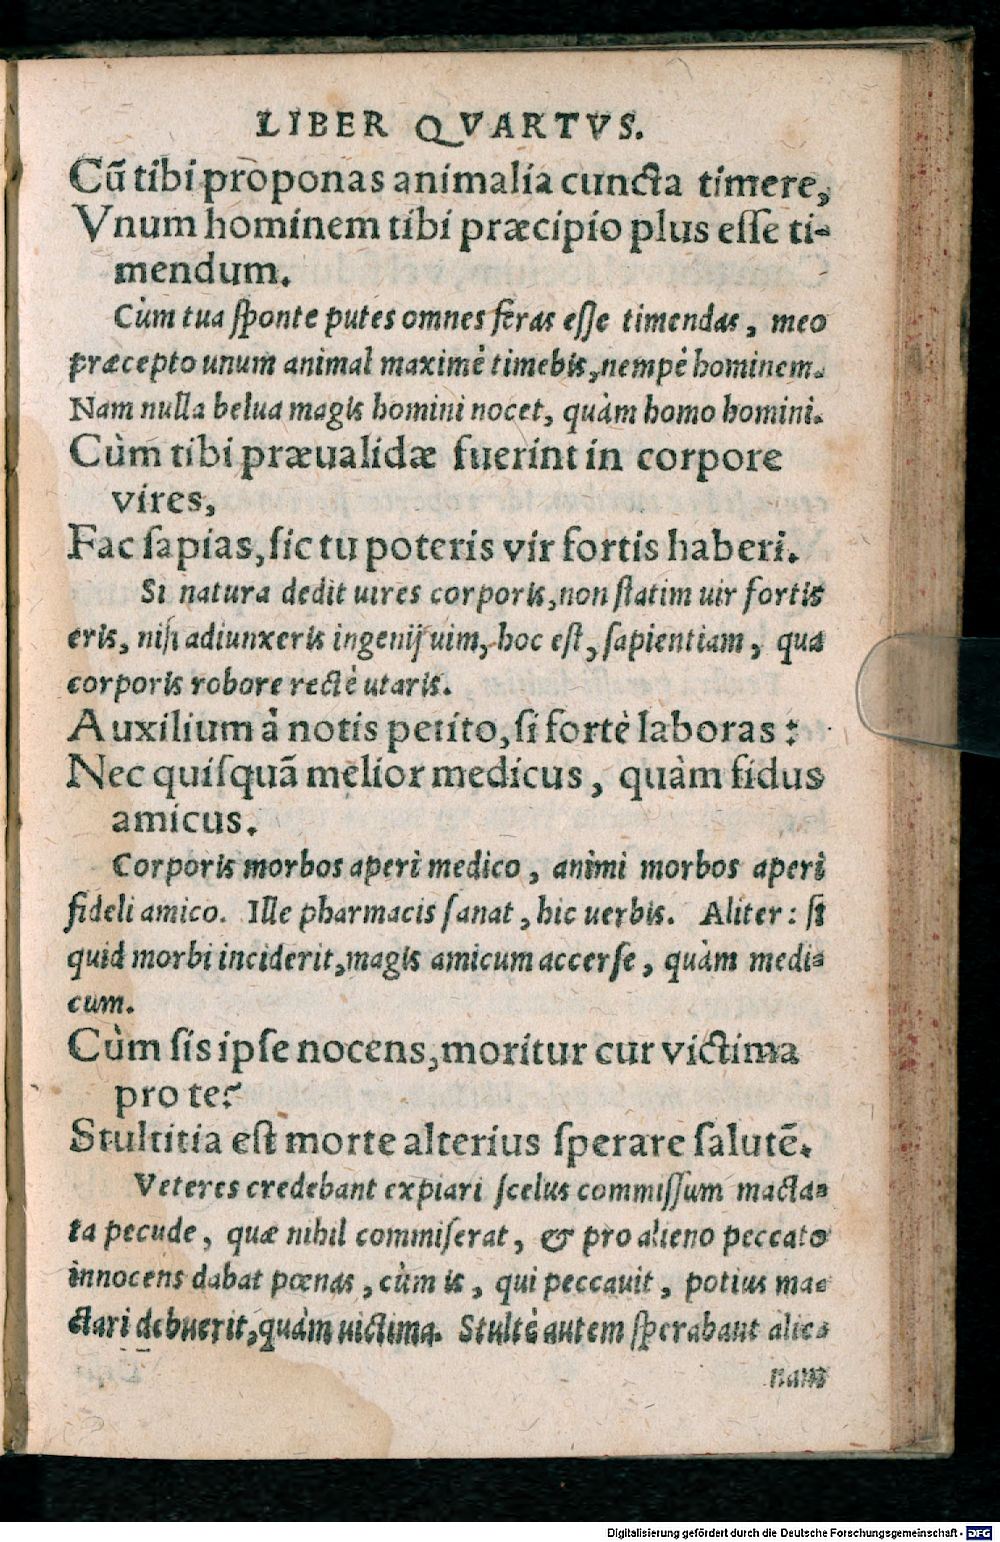 LIBER QVARTVS.
Cũ tibi proponas animalia cuncta timere,
Vnum hominem tibi præcipio plus eſſe ti-
mendum.
Cùm tua ſponte putes omnes feras eſſe timendas, meo
præcepto unum animal maximè timebis, nempè hominem.
Nam nulla belua magis homini nocet, quàm homo homini.
Cùm tibi præualidæ fuerint in corpore
vires,
Fac ſapias, ſic tu poteris vir fortis haberi.
Si natura dedit uires corporis, non ſtatim uir fortis
eris, niſi adiunxeris ingenij uim, hoc eſt, ſapientiam, qua
corporis robore rectè utaris.
Auxilium à notis petito, ſi fortè laboras:
Nec quiſquã melior medicus, quàm fidus
amicus.
Corporis morbos aperi medico, animi morbos aperi
fideli amico. Ille pharmacis ſanat, hic uerbis. Aliter: ſi
quid morbi inciderit, magis amicum accerſe, quàm medi-
cum.
Cùm ſis ipſe nocens, moritur cur victima
pro te?
Stultitia eſt morte alterius ſperare ſalutẽ.
Veteres credebant expiari ſcelus commiſſum macta-
ta pecude, quæ nihil commiſerat, & pro alieno peccato
innocens dabat pœnas, cùm is, qui peccauit, potius ma-
ctari debuerit, quàm uictima. Stultè autem ſperabant alie-
nam
Digitalisierung gefördert durch die Deutsche Forschungsgemeinschaft - DFG